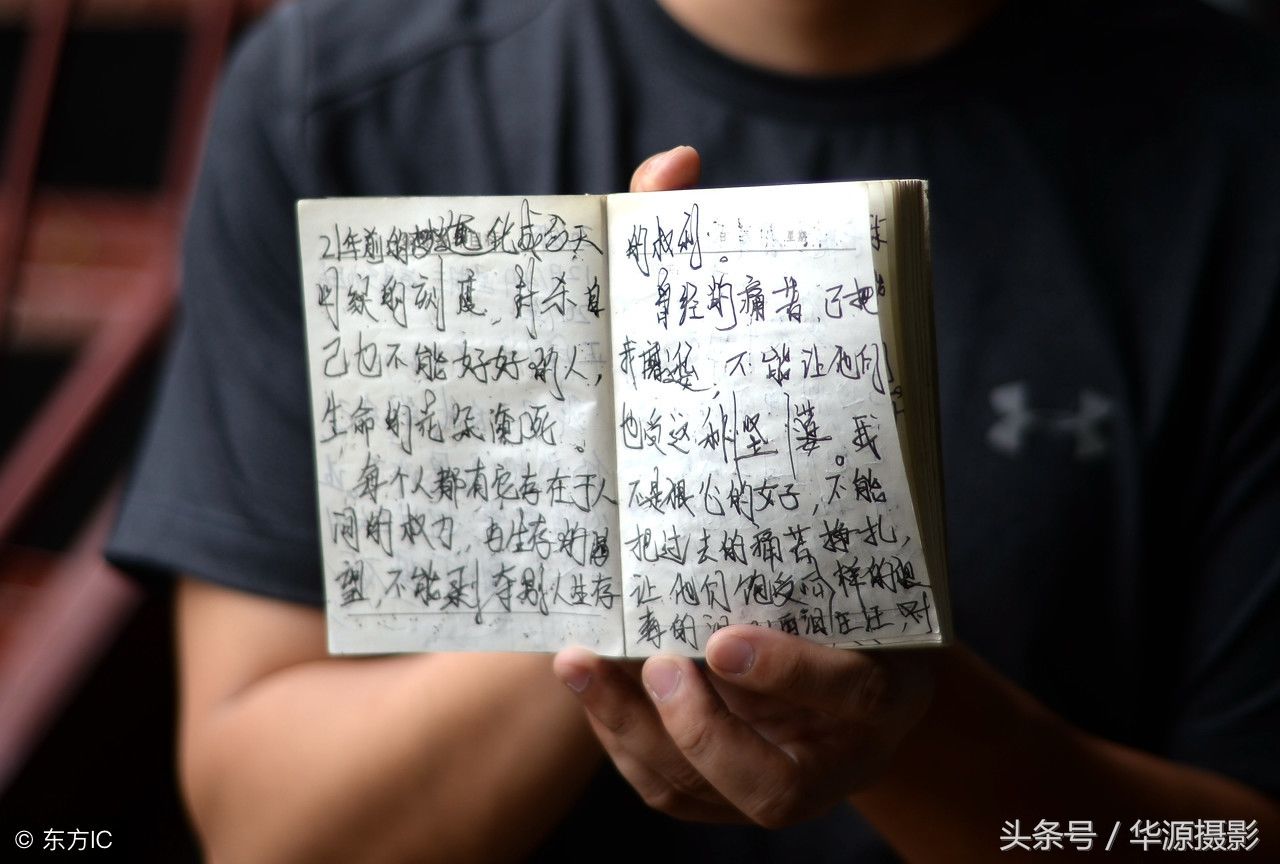 21年前的 化成今天
时候的刻度，封杀自
己也不能好好的人，
生命的花朵凋死。
每个人都有它存在于人
间的权力，由生存的愿
望，不能剥夺别人生存
的权利。
星期
曾经的痛苦，已把
我 ，不能让他们
也受这种坠落。我
不是狠心的女子，不能
把过去的痛苦挣扎，
让他们饱受同样的
的 两泪汪汪，对
© 东方IC
头条号 / 华源摄影